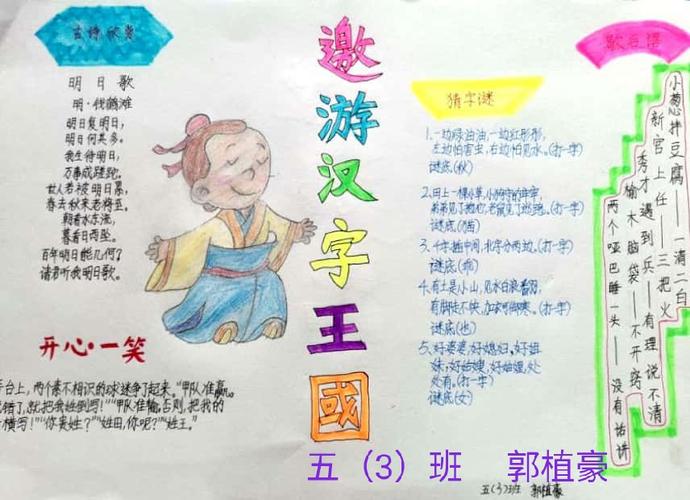 古诗欣赏
明日歌
明·钱鹤滩
明日复明日,
明日何其多。
我生待明日,
万事成蹉跎。
世人若被明日累,
春去秋来老将至。
朝看水东流,
暮看日西坠。
百年明日能几何?
请君听我明日歌。
开心一笑
台上,两个素不相识的球迷争了起来。“甲队准赢。
错了,就把我姓倒写!”“甲队准输,否则,把我的
横写!”“你莫姓?”“姓田,你呢?”“姓王。”
邀游汉字王國
猜字谜
1.一边绿油油,一边红彤彤,
左边怕害虫,右边怕见水。(打一字)
谜底(秋)
弟弟见了摘也,老鼠见了
谜底(猫)
3.千字插中间,北字分两边。(打一字)
谜底(乖)
4.有土是小山,见水白浪
有脚走不快,加衣可御寒。(打一字)
谜底(也)
5、好婆婆,好媳妇。好姐
妹,好姑嫂,好姑娌,处
处有。(打一字)
谜底(女)
歇后语
小葱拌豆腐——一清二白
新官上任——三把火
秀才遇到兵——有理说不清
榆木脑袋——不开窍
两个哑巴睡一头——没有话讲
五(3)班 郭植豪
五(3)班 郭植豪